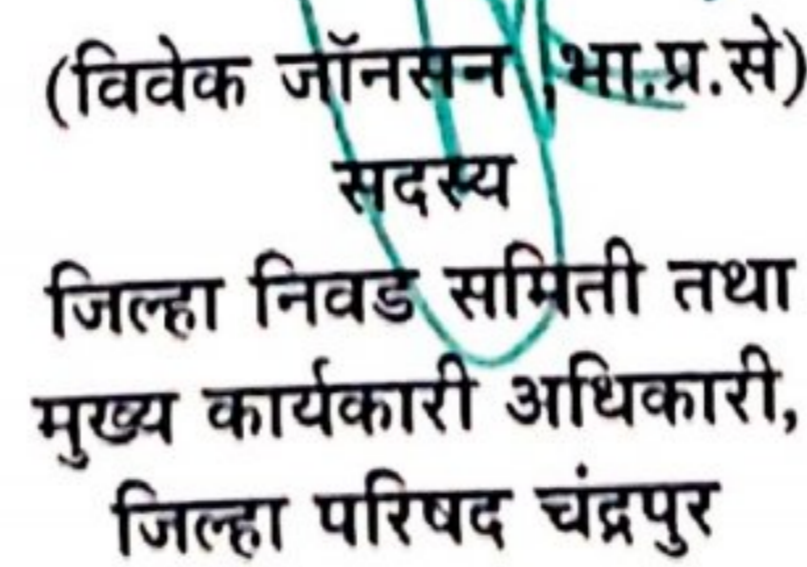 (विवेक जॉनसन ,भा.प्र.से)
सदस्य
जिल्हा निवड समिती तथा
मुख्य कार्यकारी अधिकारी,
जिल्हा परिषद चंद्रपुर